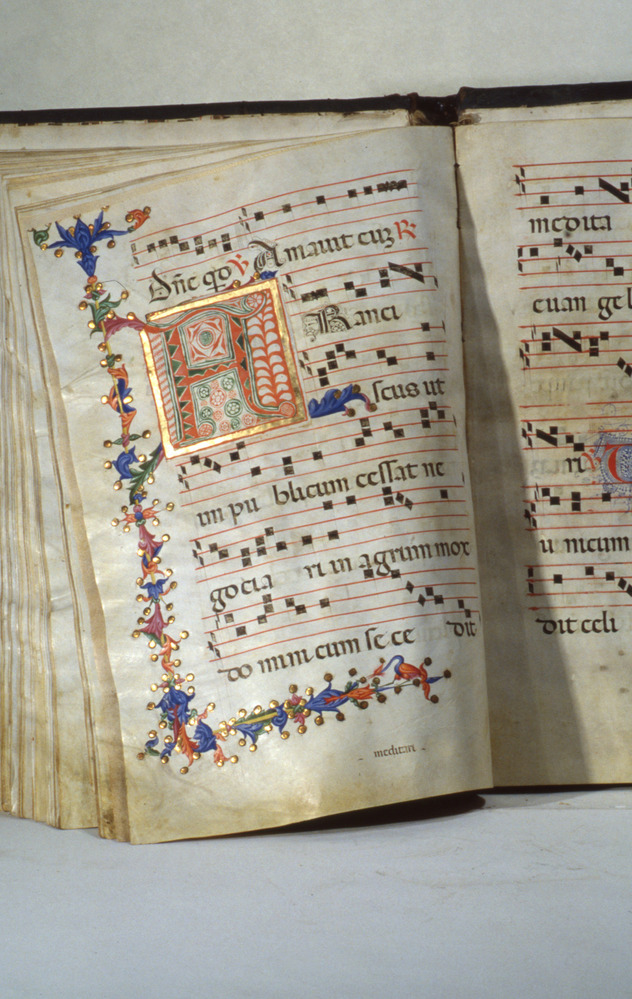 Dñe qo ℣ Amauit euz ℞
FRanci
scus ut
im pu blicum cessat ne
gocia ri in agrum mox
do mini cum se ce dit
meditari
medita
euan gel
ri ℣ T
u nicum
dit eccli